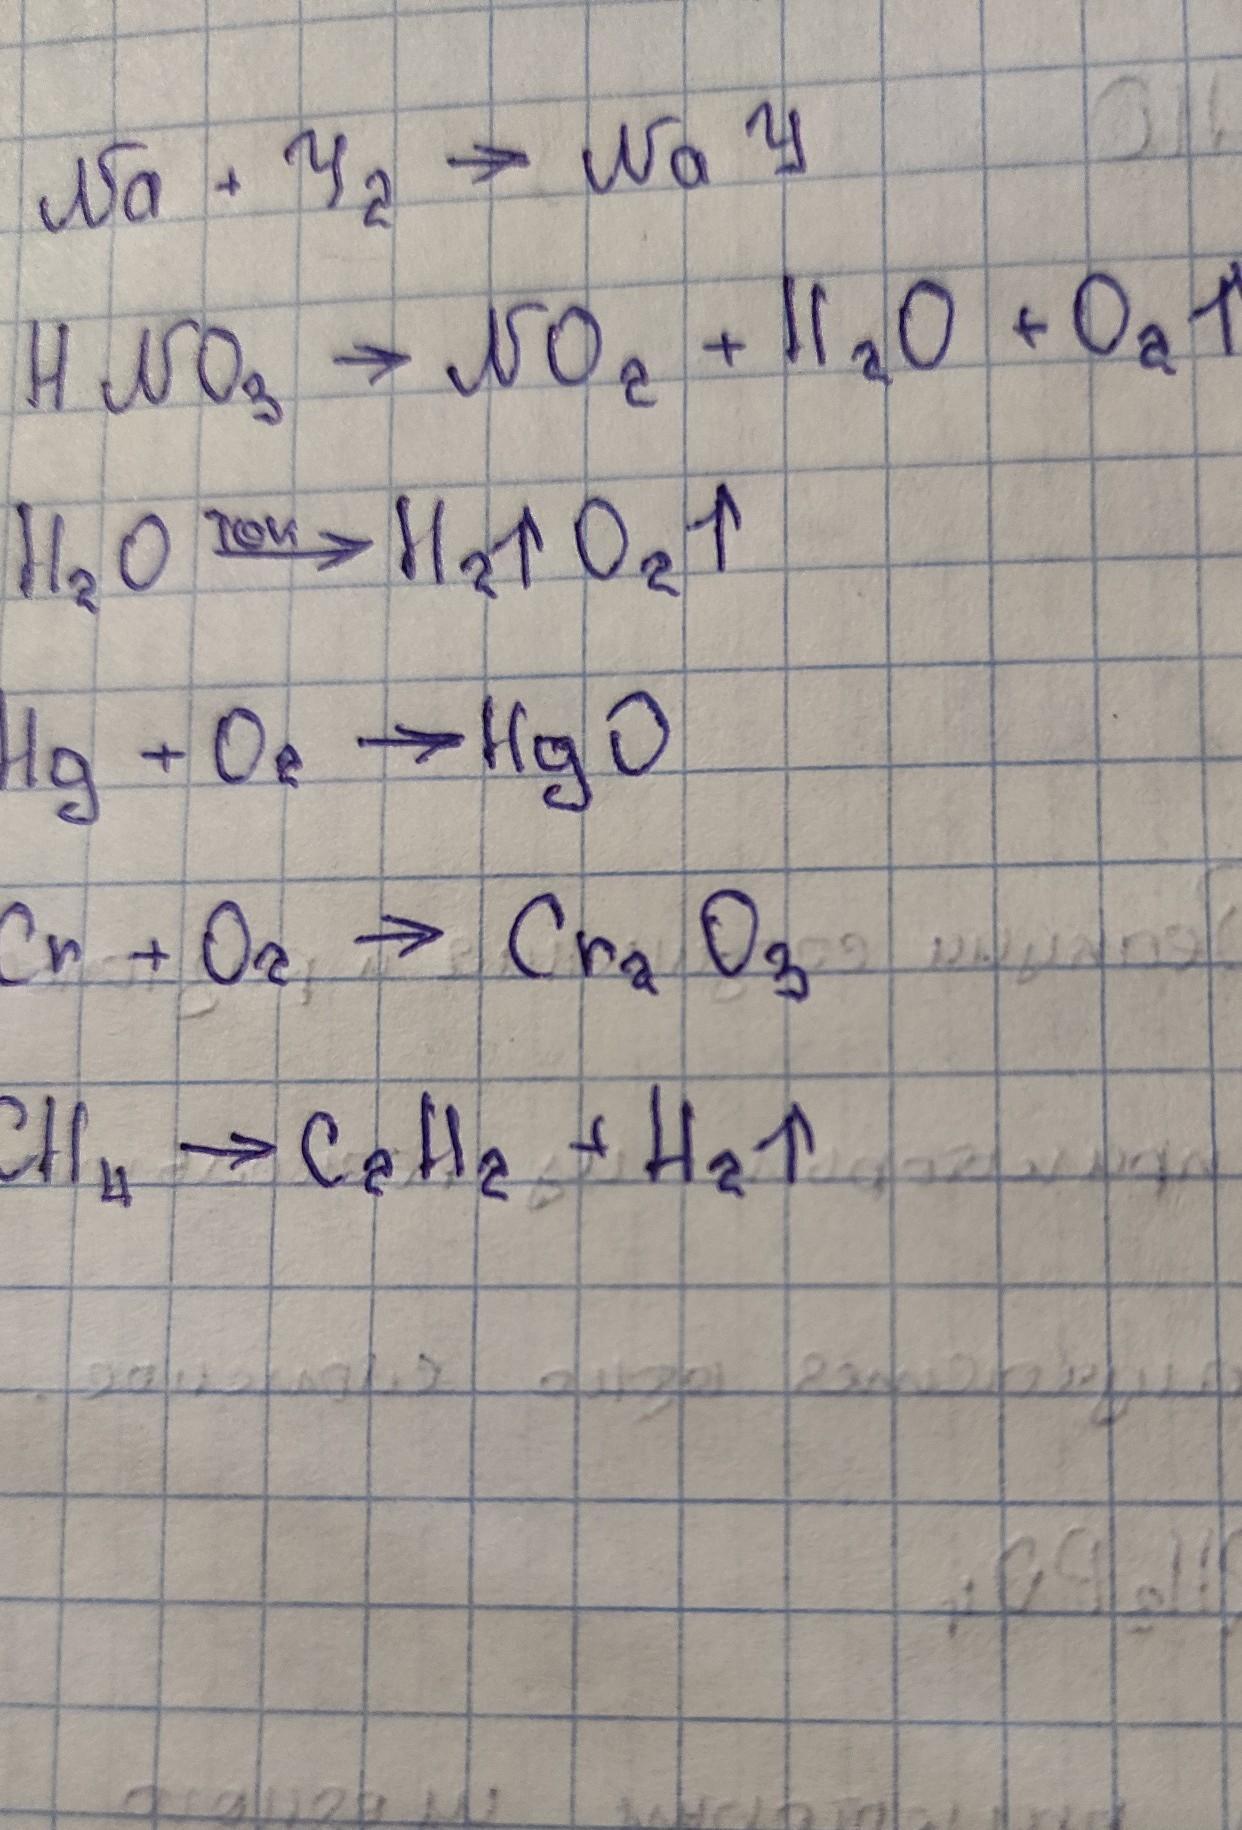 Na + У₂ → Na У
HNO₃ → NO₂ + H₂O + O₂↑
H₂O ток→ H₂↑ O₂↑
Hg + O₂ → HgO
Cr + O₂ → Cr₂O₃
CH₄ → C₂H₂ + H₂↑